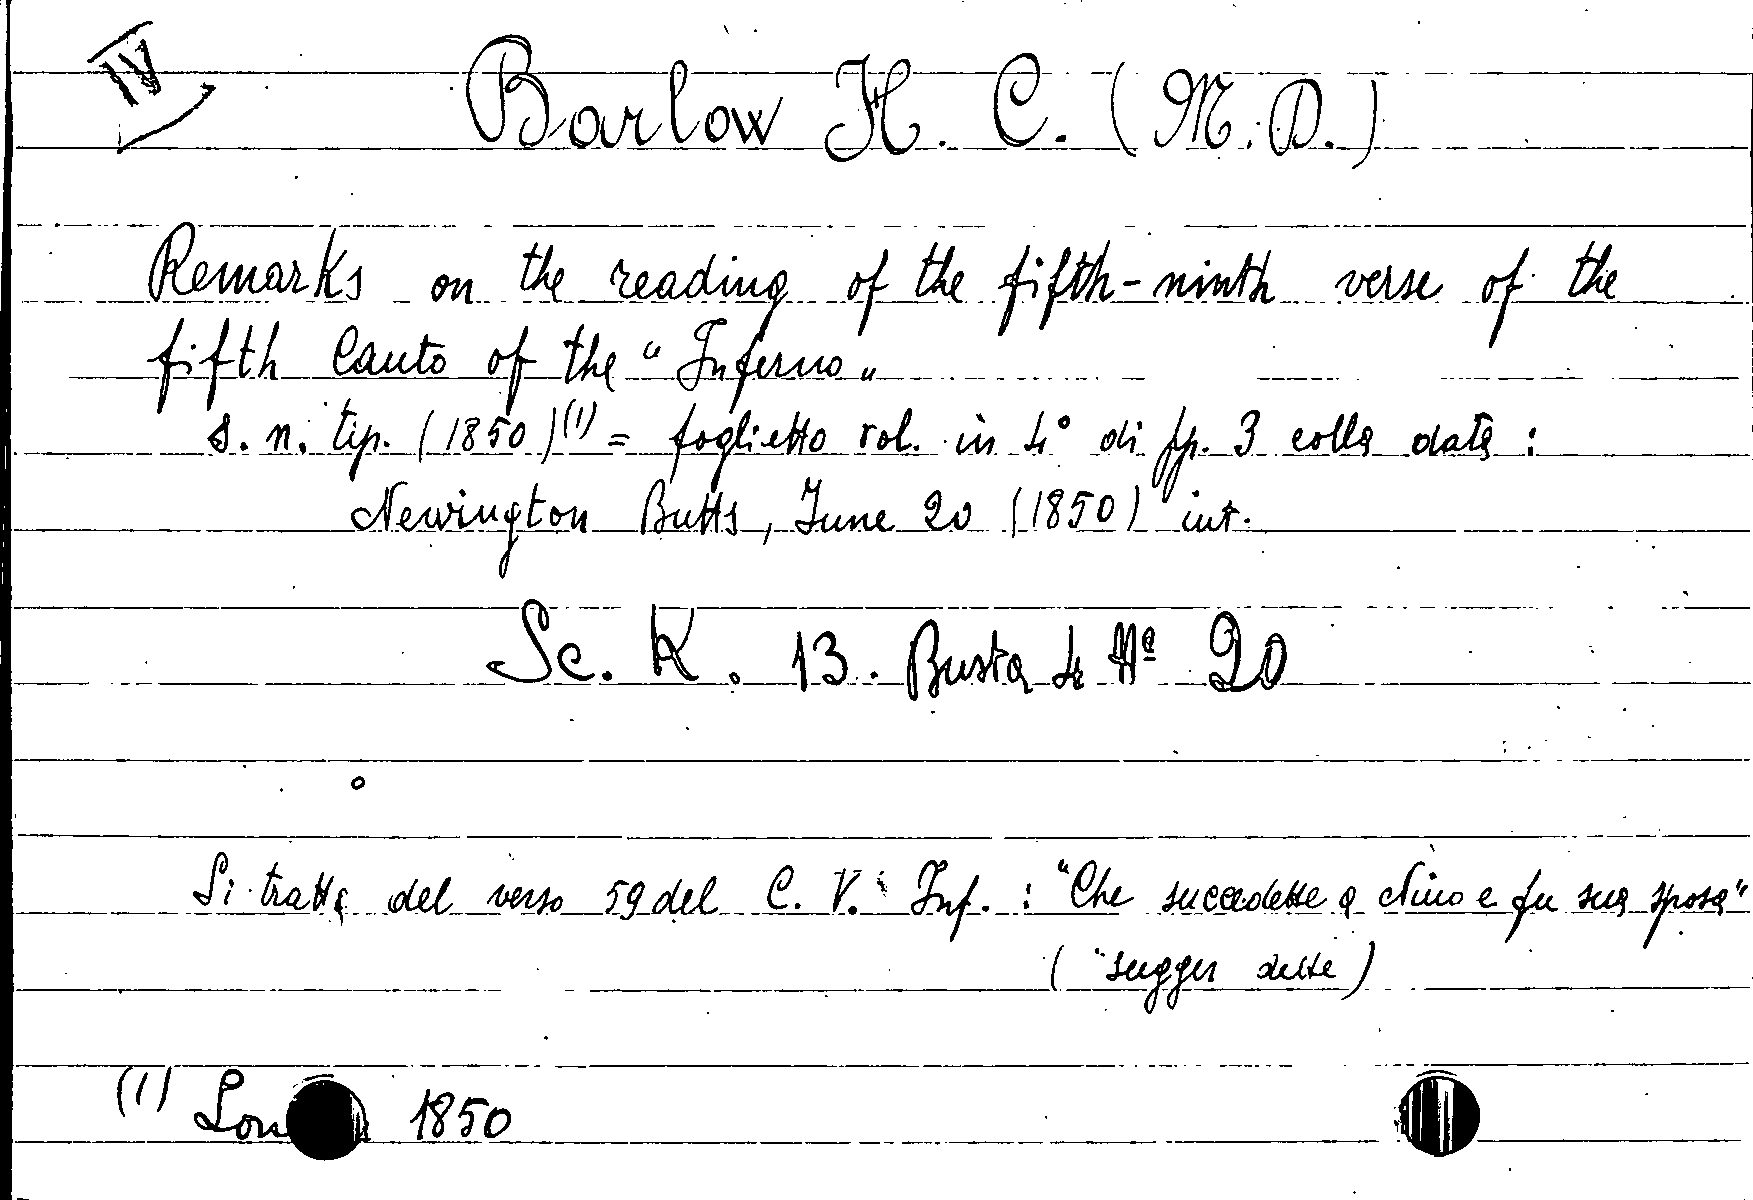 IV
Barlow H. C. (M.D.)
Remarks on the reading of the fifth-ninth verse of the
fifth Canto of the "Inferno"
s. n. tip. (1850)(1) = foglietto vol. in 4° di pp. 3 colla data:
Newington Butts, June 20 (1850) int.
Sc. K. 13. Busta 4 Nº 20
Si tratta del verso 59 del C. V. Inf.: "Che succedette a Nino e fu sua sposa"
("sugger dette)
(1) Lon 1850